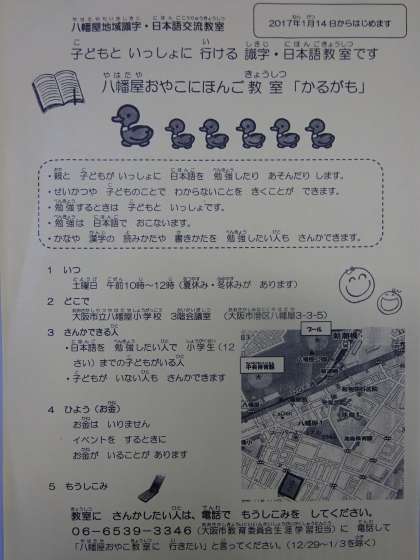 八幡屋地域識字・日本語交流教室
2017年1月14日からはじめます
子どもと いっしょに 行ける 識字・日本語教室です
八幡屋おやこにほんご教室「かるがも」
・親と 子どもが いっしょに 日本語を 勉強したり あそんだり します。
・せいかつや 子どものことで わからないことを きくことが できます。
・勉強するときは 子どもと いっしょです。
・勉強は 日本語で おこないます。
・かなや 漢字の 読みかたや 書きかたを 勉強したい人も さんかできます。
1 いつ
土曜日 午前10時~12時(夏休み・冬休みが あります)
2 どこで
大阪市立八幡屋小学校 3階会議室 (大阪市港区八幡屋3-3-5)
3 さんかできる人
・日本語を 勉強したい人で 小学生(12
さい)までの子どもがいる人
・子どもが いない人も さんかできます
プール
朝潮橋
中央体育館
八幡屋1
4 ひよう(お金)
お金は いりません
イベントを するときに
お金が いることが あります
5 もうしこみ
教室に さんかしたい人は、電話で もうしこみを してください。
06-6539-3346(大阪市教育委員会生涯学習担当)に 電話して
「八幡屋おやこ教室に 行きたい」と言ってください。(12/29~1/3を除く)